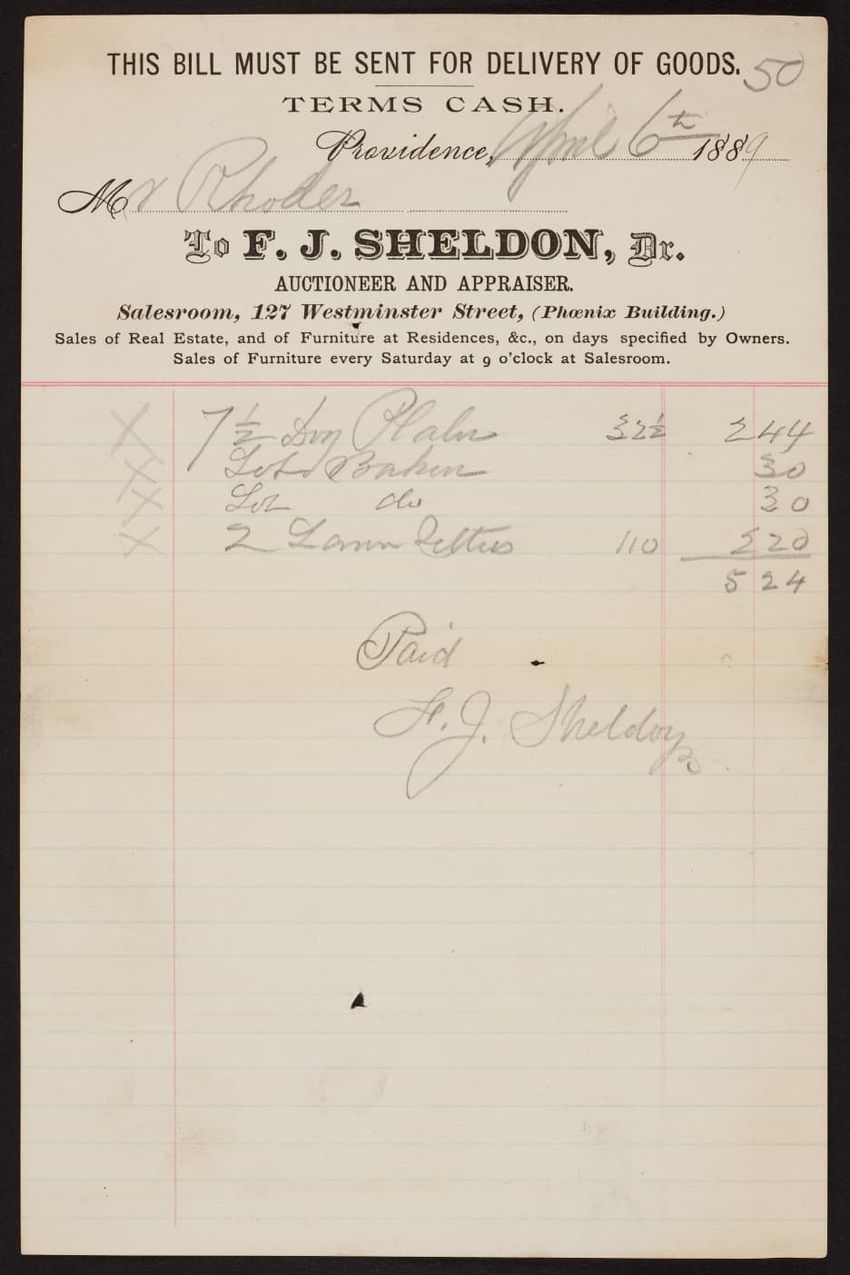 THIS BILL MUST BE SENT FOR DELIVERY OF GOODS. 50
TERMS CASH.
Providence, April 6th 1889
Mr Rhodes
To F. J. SHELDON, Dr.
AUCTIONEER AND APPRAISER.
Salesroom, 127 Westminster Street, (Phœnix Building.)
Sales of Real Estate, and of Furniture at Residences, &c., on days specified by Owners.
Sales of Furniture every Saturday at 9 o'clock at Salesroom.
X 7 1/2 Doz 32 1/2 2 44
X Lot 30
X Lot do 30
X 2 Lawn 110 2 20
5 24
Paid
F. J. Sheldon